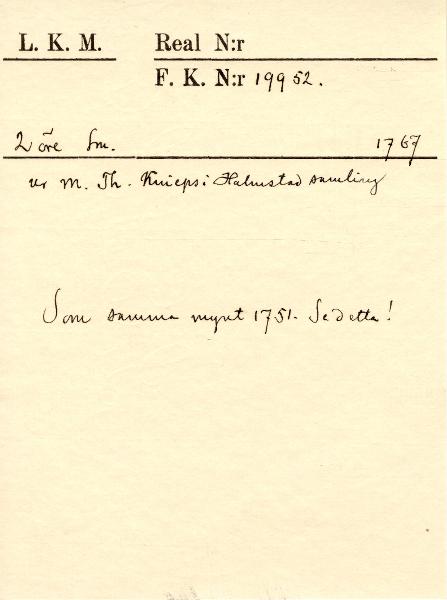 L. K. M. Real N:r
F. K. N:r 19952.
2 öre Sm. 1767
ur M. Th. Knieps i Halmstad samling
Som samma mynt 1751. Se detta!